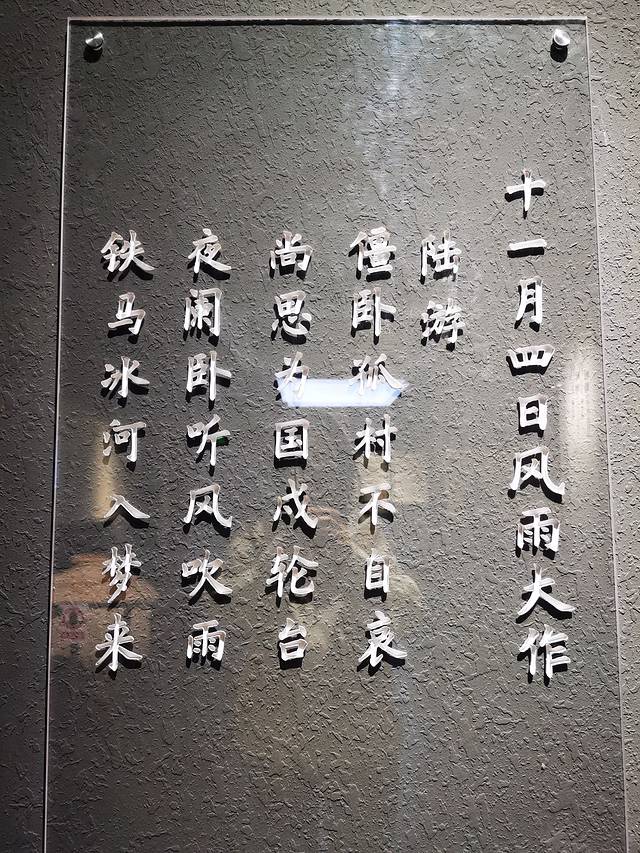 十一月四日风雨大作
陆游
僵卧孤村不自哀
尚思为国戍轮台
夜阑卧听风吹雨
铁马冰河入梦来